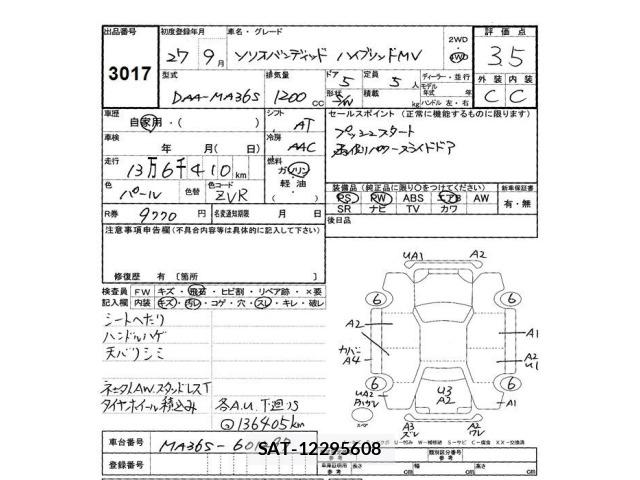 出品番号 初度登録年月 車名・グレード 評価点
3017 27年 9月 ソリオバンディッド ハイブリッドMV 2WD 4WD 3.5
型式 排気量 ドア 定員 ディーラー・並行 外装 内装
DAA-MA36S 1200cc 5 5人 モデル年式 年 C C
形状 S/W 積載 kg ハンドル 左・右
車歴 シフト セールスポイント (正常に機能するものに限ります)
自家用・( ) AT プッシュスタート
車検 冷房
年 月( 日) AAC パワースライドドア
走行 燃料
13万6千410km ガソリン
軽油
色 色替 色コード ( ) 装備品 (純正品に限り○をつけてください) 新車保証書
パール ZVR PS PW ABS エアB AW 有・無
SR ナビ TV カワ
R券 9770円 名変通知期限 月 日 後日品
注意事項申告欄(不具合内容等は具体的に記入して下さい)
修復歴 有 [箇所 ]
検査員 FW キズ・飛石・ヒビ割・リペア跡・×要
記入欄 内装 キズ・汚レ・コゲ・穴・スレ・キレ・破レ
シートへたり
ハンドルハゲ
天バリシミ
タイヤホイール積込み 各A.U.下廻りS
@136405km
UA1 A2
6 6
A2 A1
カバー A4 A2 U1
6 6
UA2 U3 A2 A1
スペア
A3 A2
車台番号 MA36S-601
SAT-12295608
登録番号
車庫証明用 参考 長さ cm 幅 cm 高さ cm
類別区分番号 参考